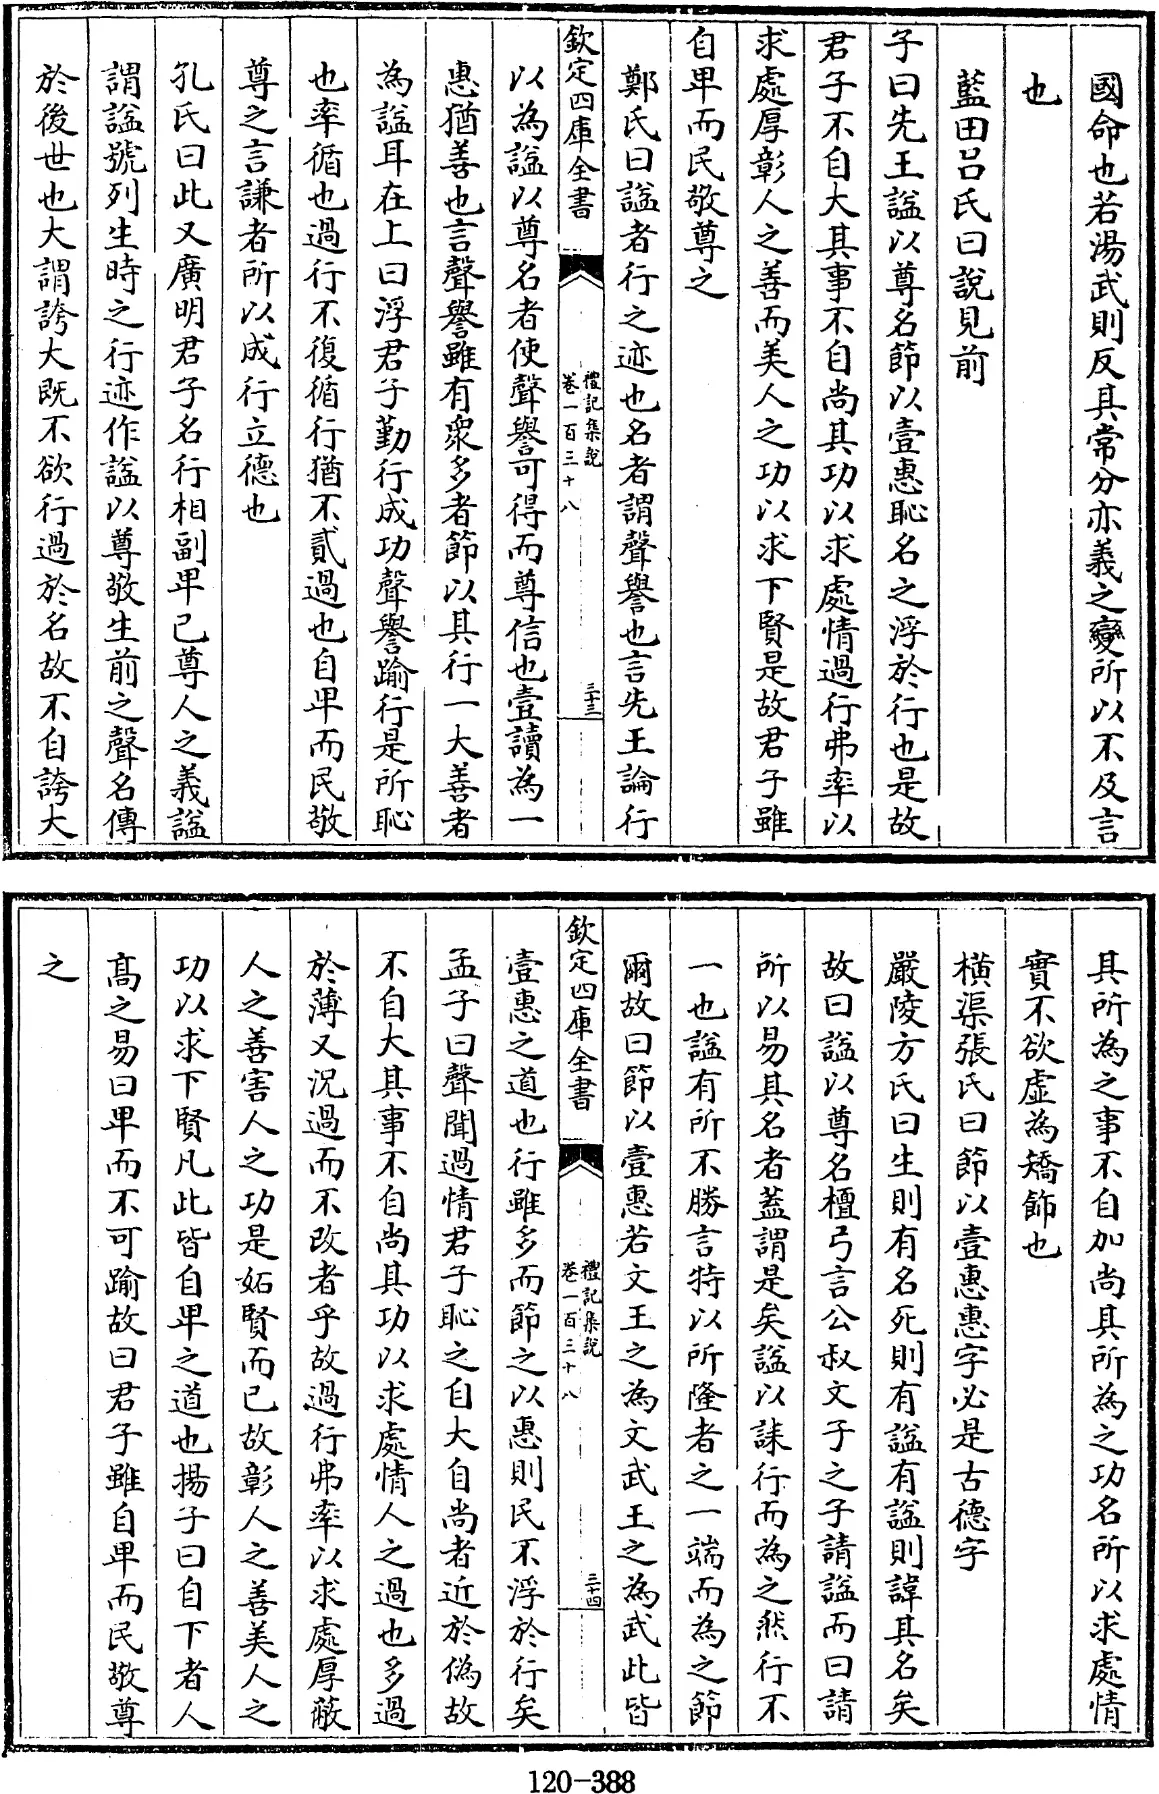 國命也若湯武則反其常分亦義之變所以不及言
也
藍田呂氏曰說見前
子曰先王諡以尊名節以壹惠恥名之浮於行也是故
君子不自大其事不自尚其功以求處情過行弗率以
求處厚彰人之善而美人之功以求下賢是故君子雖
自卑而民敬尊之
鄭氏曰諡者行之迹也名者謂聲譽也言先王論行
欽定四庫全書
禮記集說
卷一百三十八
三十三
以為諡以尊名者使聲譽可得而尊信也壹讀為一
惠猶善也言聲譽雖有衆多者節以其行一大善者
為諡耳在上曰浮君子勤行成功聲譽踰行是所恥
也率循也過行不復循行猶不貳過也自卑而民敬
尊之言謙者所以成行立德也
孔氏曰此又廣明君子名行相副卑己尊人之義諡
謂諡號列生時之行迹作諡以尊敬生前之聲名傳
於後世也大謂誇大既不欲行過於名故不自誇大
其所為之事不自加尚其所為之功名所以求處情
實不欲虛為矯飾也
橫渠張氏曰節以壹惠惠字必是古德字
嚴陵方氏曰生則有名死則有諡有諡則諱其名矣
故曰諡以尊名檀弓言公叔文子之子請諡而曰請
所以易其名者蓋謂是矣諡以誄行而為之然行不
一也諡有所不勝言特以所隆者之一端而為之節
爾故曰節以壹惠若文王之為文武王之為武此皆
欽定四庫全書
禮記集說
卷一百三十八
三十四
壹惠之道也行雖多而節之以惠則民不浮於行矣
孟子曰聲聞過情君子恥之自大自尚者近於偽故
不自大其事不自尚其功以求處情人之過也多過
於薄又況過而不改者乎故過行弗率以求處厚蔽
人之善害人之功是妬賢而已故彰人之善美人之
功以求下賢凡此皆自卑之道也揚子曰自下者人
高之易曰卑而不可踰故曰君子雖自卑而民敬尊
之
120-388